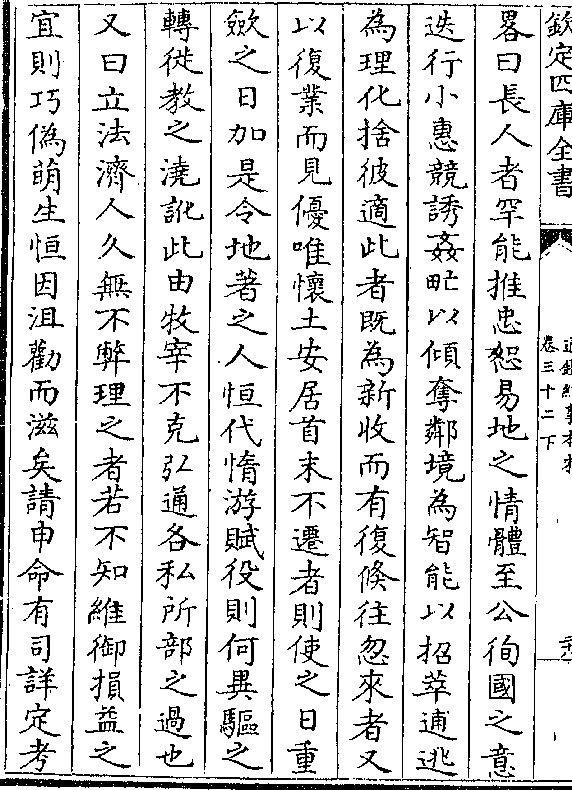 欽定四庫全書
卷三十二下
畧曰長人者罕能推忠恕易地之情體至公徇國之意
迭行小惠競誘姦甿以傾奪鄰境為智能以招萃逋逃
為理化捨彼適此者既為新收而有復倏往忽來者又
以復業而見優唯懷土安居首末不遷者則使之日重
斂之日加是令地著之人恒代惰游賦役則何異驅之
轉徙教之澆訛此由牧宰不克弘通各私所部之過也
又曰立法濟人久無不弊理之者若不知維御損益之
宜則巧偽萌生恒因沮勸而滋矣請申命有司詳定考